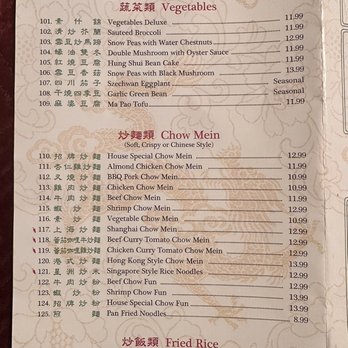 蔬菜類 Vegetables
101. 素什錦 Vegetables Deluxe 11.99
102. 清炒芥蘭 Sauteed Broccoli 11.99
103. 雪豆炒馬蹄 Snow Peas with Water Chestnuts 12.99
104. 蠔油雙冬 Double Mushroom with Oyster Sauce 12.99
105. 紅燒豆腐 Hung Shui Bean Cake 11.99
106. 雪豆香菇 Snow Peas with Black Mushroom 13.99
107. 四川茄子 Szechwan Eggplant Seasonal
108. 干燒四季豆 Garlic Green Bean Seasonal
109. 麻婆豆腐 Ma Pao Tofu 11.99
炒麵類 Chow Mein
(Soft, Crispy or Chinese Style)
110. 招牌炒麵 House Special Chow Mein 12.99
111. 杏仁雞炒麵 Almond Chicken Chow Mein 11.99
112. 叉燒炒麵 BBQ Pork Chow Mein 12.99
113. 雞肉炒麵 Chicken Chow Mein 11.99
114. 牛肉炒麵 Beef Chow Mein 11.99
115. 蝦炒麵 Shrimp Chow Mein 13.99
116. 素炒麵 Vegetable Chow Mein 11.99
117. 上海炒麵 Shanghai Chow Mein 12.99
118. 蕃茄咖喱牛炒麵 Beef Curry Tomato Chow Mein 12.99
119. 蕃茄咖喱雞炒麵 Chicken Curry Tomato Chow Mein 12.99
120. 港式炒麵 Hong Kong Style Chow Mein 13.99
121. 星洲炒米 Singapore Style Rice Noodles 12.99
122. 牛肉炒粉 Beef Chow Fun 11.99
123. 蝦炒粉 Shrimp Chow Fun 13.99
124. 招牌炒粉 House Special Chow Fun 13.99
125. 煎麵 Pan Fried Noodles 8.99
炒飯類 Fried Rice